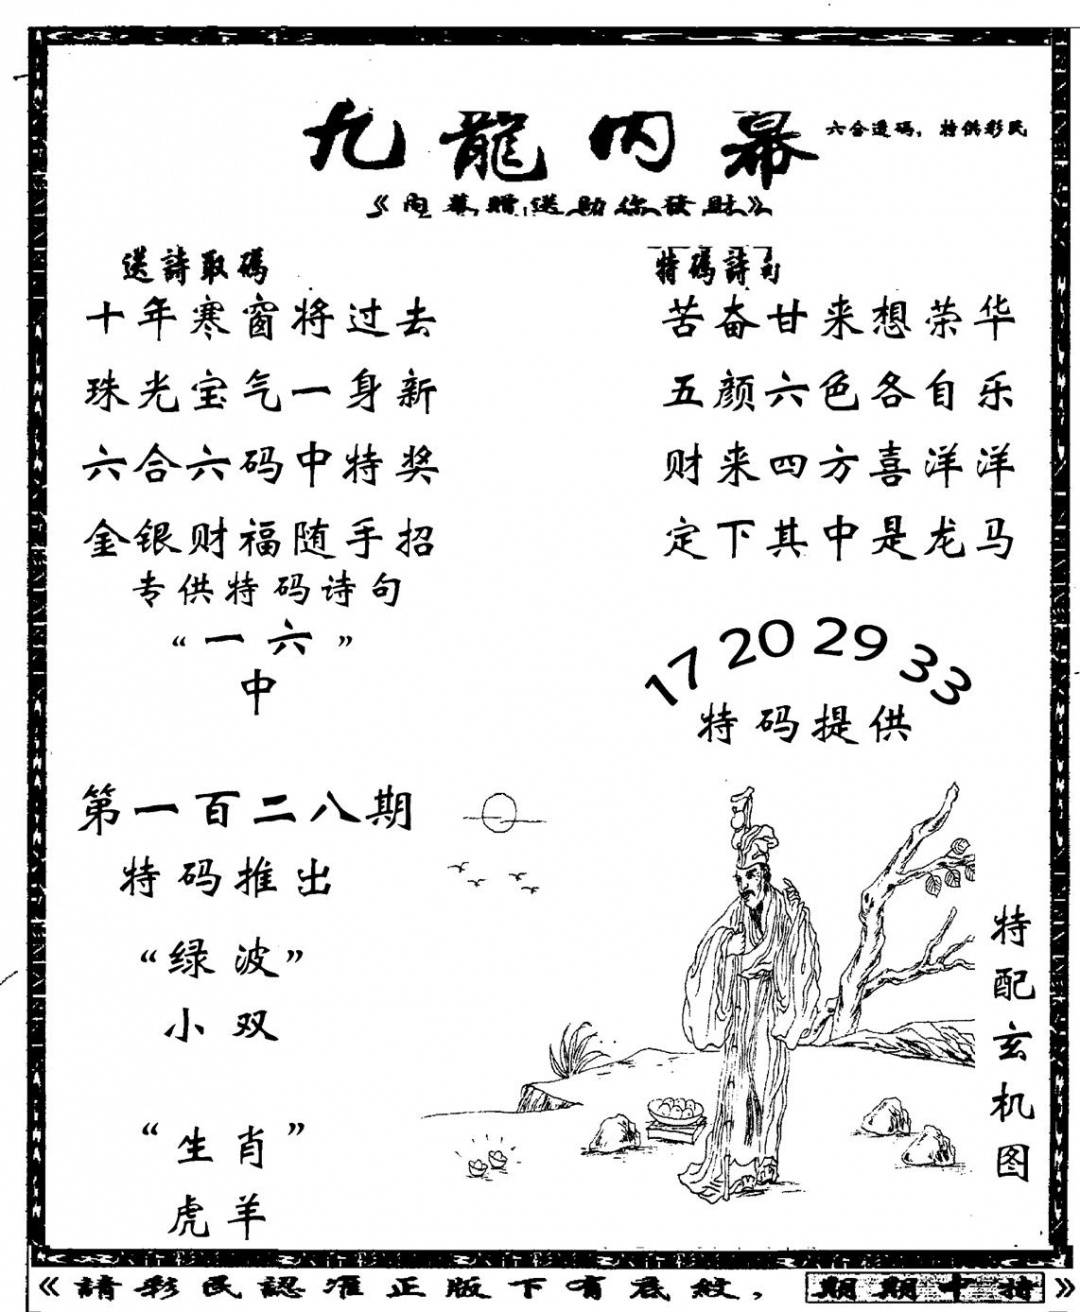 九龍内幕
六合透码，特供彩民
《内幕赠送助你發财》
送詩取碼
十年寒窗将过去
珠光宝气一身新
六合六码中特奖
金银财福随手招
专供特码诗句
“一六”
中
特碼詩句
苦奋甘来想荣华
五颜六色各自乐
财来四方喜洋洋
定下其中是龙马
17 20 29 33
特码提供
第一百二八期
特码推出
“绿波”
小双
“生肖”
虎羊
特配玄机图
《請彩民認准正版下有底紋，期期中特》